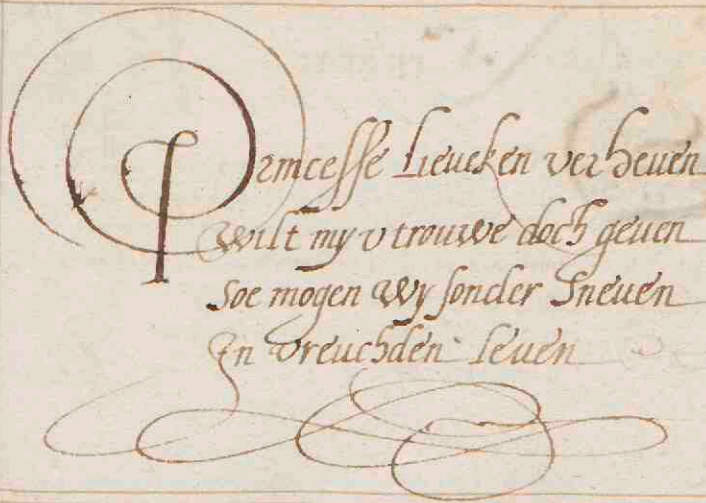 Princesse Lieucken verheuen
Wilt my v trouwe doch geuen
Soe mogen wy sonder sneuen
In vreuchden leuen